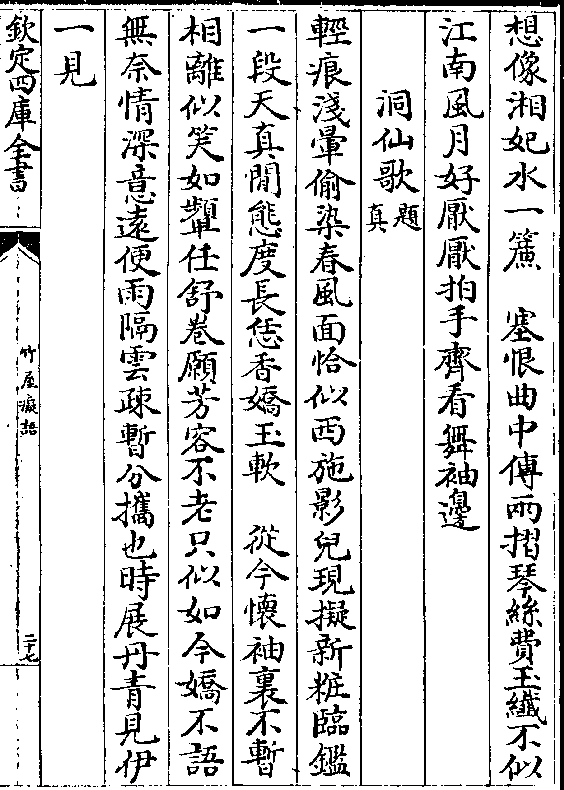 想像湘妃水一簾　塞恨曲中傳兩摺琴絲費玉纖不似
江南風月好厭厭拍手齊看舞袖邊
洞仙歌題真
輕痕淺暈偷染春風面恰似西施影兒現擬新粧臨鑑
一段天真閒態度長恁香嬌玉軟　從今懷袖裏不暫
相離似笑如顰任舒卷願芳容不老只似如今嬌不語
無奈情深意遠便雨隔雲疎暫分攜也時展丹青見伊
一見
欽定四庫全書
竹屋癡語
二十七